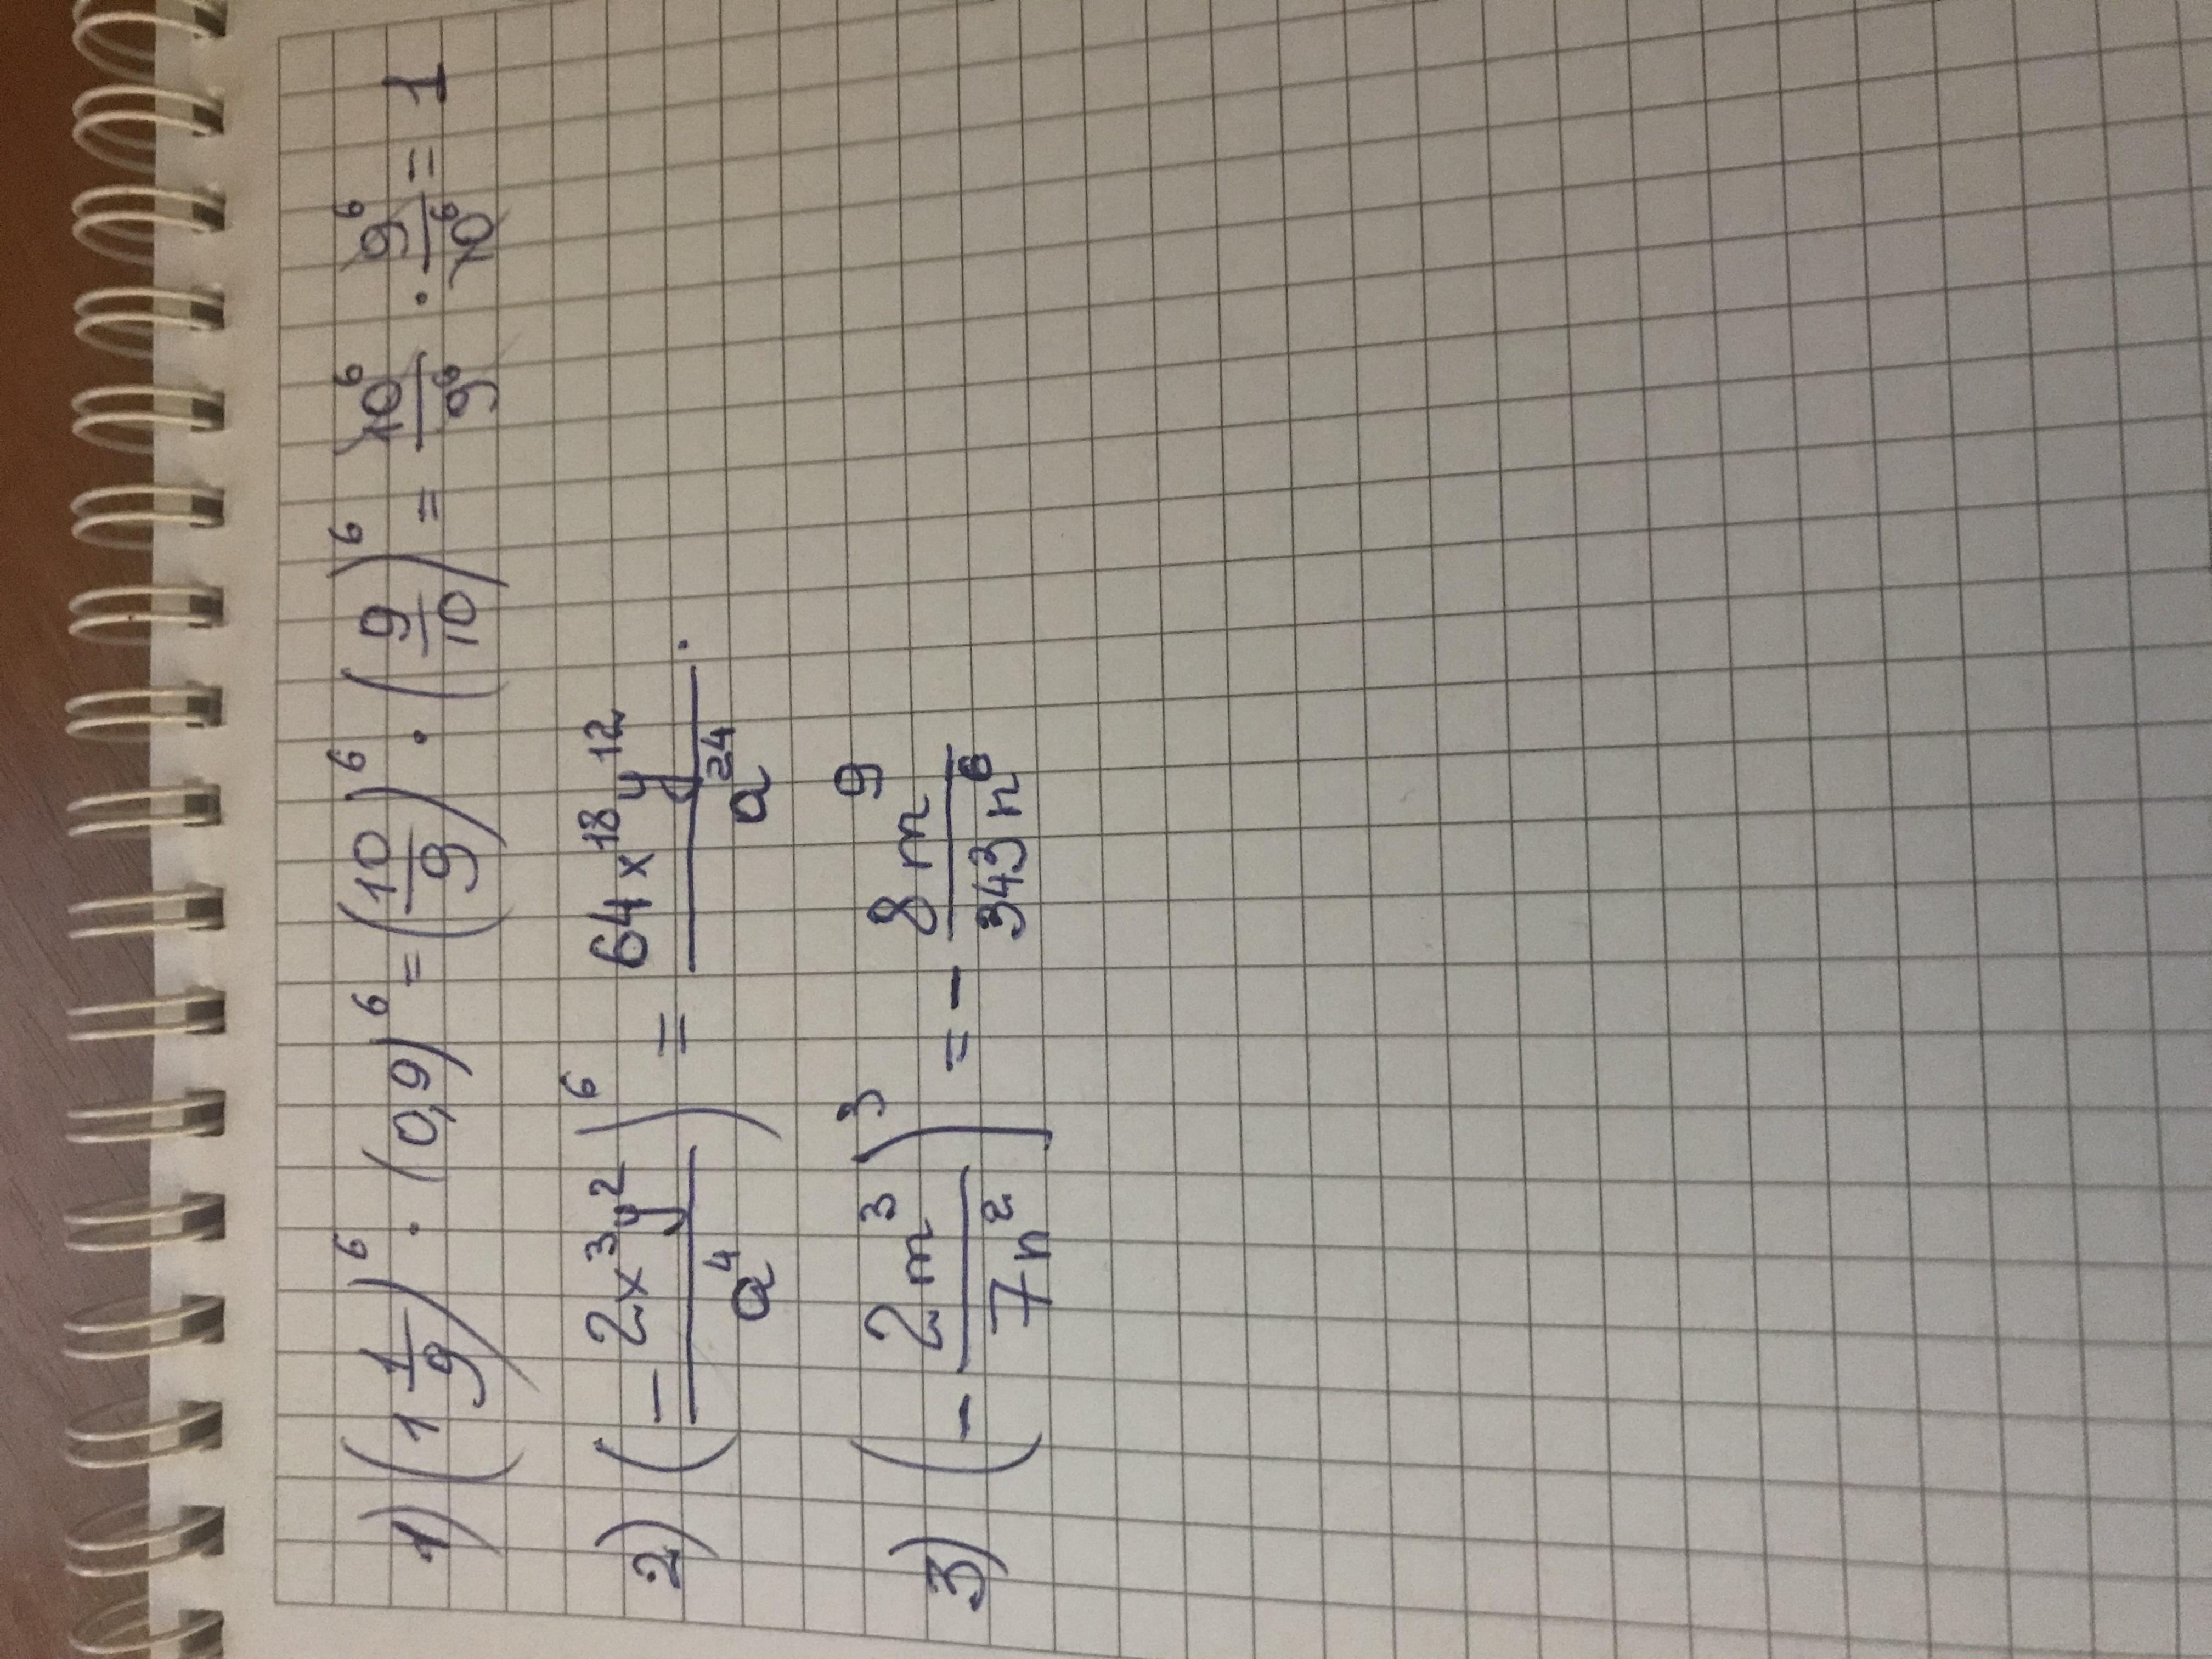 1) (1 1/9)⁶ · (0,9)⁶ = (10/9)⁶ · (9/10)⁶ = 10⁶/9⁶ · 9⁶/10⁶ = 1
2) (-2x³y²/a⁴)⁶ = 64x¹⁸y¹²/a²⁴.
3) (- 2m³/7n²)³ = - 8m⁹/343n⁶